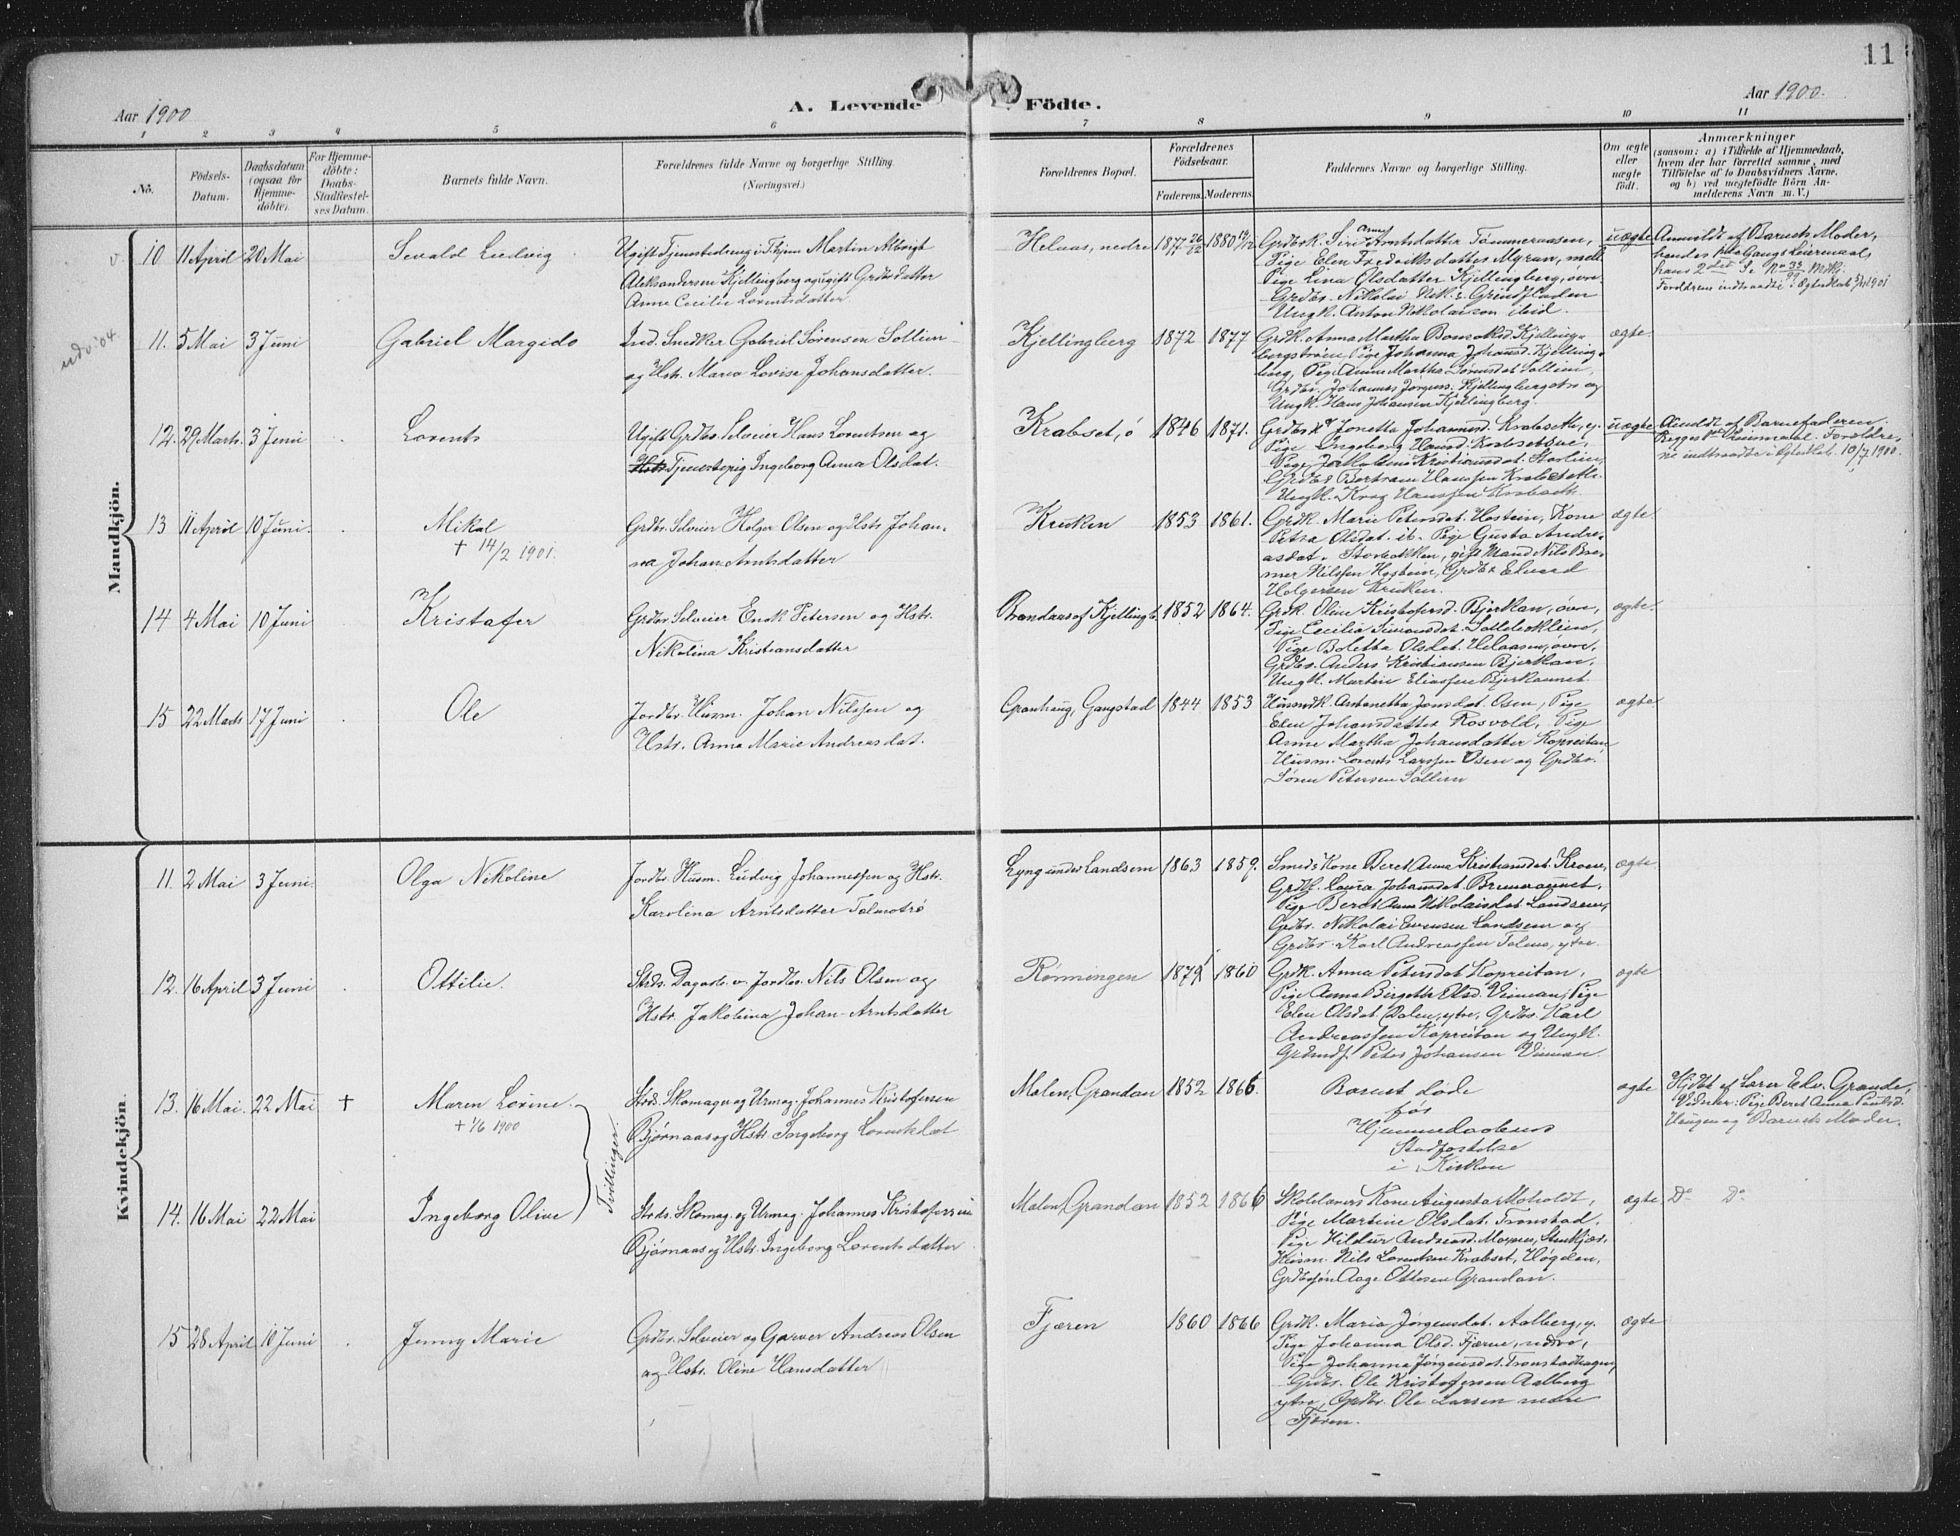 11
Aar 1900
A. Levende Födte.
Aar 1900.
1 2 3 4 5 6 7 8 9 10 11
No.
Födsels-Datum.
Daabsdatum (ogsaa for Hjemme-döbte).
For Hjemme-döbte: Daabs-Stadfæstel-ses Datum.
Barnets fulde Navn.
Forældrenes fulde Navne og borgerlige Stilling.
(Næringsvei.)
Forældrenes Bopæl.
Forældrenes Födselsaar.
Faderens. Moderens.
Faddernes Navne og borgerlige Stilling.
Om ægte eller uægte födt.
Anmærkninger
(saasom: a) i Tilfælde af Hjemmedaab, hvem der har forrettet samme, med Tilföielse af to Daabsvidners Navne, og b) ved uægtefödte Börn An-melderens Navn m. V.)
Mandkjön.
10 11 April 20 Mai Sevald Ludvig
Ugift Tjenestedreng i Thjem Martin Albrigt
Aleksandersen Kjellingberg og ugift Grdbr.datter
Anne Cecilie Lorentsdatter
Helaas, nedre 1877 26/12 1880
Grdbrk. Siri Anna Arntsdatter Tømmeraasen,
Pige Elen Frederiksdatter Myran,
Pige Lina Olsdatter Kjellingberg, øvre
Grdbr. Nikolai
Ungk. Anton Nikolaisen ibid.
uægte
Anmeldt af Barnets Moder,
hendes 1ste Gangs Leiermaal,
hans 2det Se No 33/99
Forældrene indtraadte i Ægteskab 1901
udv '04
11. 5 Mai 3 Juni Gabriel Margido
Ind. Snedker Gabriel Sørensen Solliem
og Hstr. Maria Lovise Johansdatter.
Kjellingberg 1872 1877
Grdk. Anna Martha Kjelling-
bergstrøen, Pige Johanna Johansd. Kjelling-
berg, Pige Anne Martha Sollien,
Grdbr. Johannes Jørgens. Kjellingbergstrø og
Ungk. Hans Johansen Kjellingberg.
ægte
12. 29 Marts. 3 Juni Lorents
Ugift Grdbr. Selveier Hans Lorentsen og
Tjenestepig Ingeborg Anna Olsdat.
Krabset, ø 1846 1871.
Grdbrk. Jonetta Johannesd. Krabseth, y.
Pige Ingeborg
Pige
Grdbr Bertram Hanssen Krabseth.
Ungk. Hanssen Krabseth.
uægte
Anmeldt af Barnefaderen.
Begges 1ste Leiermaal. Forældre-
ne indtraadte i Ægteskab. 10/7 1900.
13 11 April 10 Juni. Mikal
+ 14/2 1901.
Grdbr. Selveier Holger Olsen og Hstr. Johan-
na Johan-Arntsdatter
Kruken 1853 1861.
Grdk. Marie Petersdat. Kone
Petra Olsdat. ib. Pige Gusta Andre-
asdat. Storbakken, gift Mand Nils Bre-
mer Nilssen Grdbr Edvard
Holgersen Kruken.
ægte
14 4 Mai 10 Juni Kristofer
Grdbr. Selveier Enok Petersen og Hstr.
Nikolina Kristiansdatter
Brandaas af Kjellingb. 1852 1864.
Grdk. Oline Kristofersd. Bjerkan, øvre,
Pige Cecilia Simonsdat.
Pige Boletta Olsdat. Helaasen, øvre,
Grdbr. Anders Kristiansen Bjerkan,
Ungk. Martin Eliassen Bjerkaunet
ægte.
15 22 Marts 17 Juni Ole
Jordbr. Husm. Johan Nilssen og
Hstr. Anna Marie Andreasdat.
Granhaug, Gangstad 1844 1853
Husmdk. Antonetta Jonsdat. Osen, Pige
Elen Johansdatter Rosvold, Pige
Anne Martha Johansdatter Kopreitan
Husm. Lorents Larssen Osen og Grdbr.
Søren Petersen Sollien
ægte
Kvindekjön.
11. 2 Mai 3 Juni. Olga Nikoline
Jordbr. Husm. Ludvig Johannessen og Hstr.
Karolina Arntsdatter Tolmotrø
Lyng under Landsem 1863 1859.
Smeds Kone Beret Anna Kristiansdat.
Grdk. Laura Johansdat.
Pige Beret Anna Nikolaisdat. Landsem,
Grdbr. Nikolai Evensen Landsem og
Grdbr. Karl Andreassen Tolmo, ytre.
ægte.
12. 16 April 3 Juni Ottilie.
Strds. Dagarb. v. Jordbr. Nils Olsen og
Hstr. Jakobina Johan-Arntsdatter
Rønningen 1871 1860
Grdk. Anna Petersdat. Kopreitan,
Pige Anna Birgette Olsd. Vinnan, Pige
Elen Olsdat. Dalen, ytre, Grdbr. Karl
Andreassen Kopreitan og Ungk.
Peter Johansen Vinnan.
ægte
13. 16 Mai. 22 Mai + Maren Lovine.
+ 1/6 1900
Strds. Skomager og Urmag. Johannes Kristofersen
Bjørnaas og Hstr. Ingeborg Lorentsdat
Malen, Grandan 1852 1866.
Barnet døde
før
Hjemmedaabens
Stadfæstelse
i Kirken
ægte
Hjdbt af Lærer Edv. Grande,
Vidner: Pige Beret Anna Paulsd.
Haugen og Barnets Moder.
Tvillinger.
14. 16 Mai 22 Mai Ingeborg Olive
Strds. Skomag. og Urmag. Johannes Kristofersen
Bjørnaas og Hstr. Ingeborg Lorentsdatter
Malen, Grandan 1852 1866
Skolelærers Kone Augusta Moholdt,
Pige Martine Olsdat. Tronstad,
Pige Hildur Andreasd. Moxnes, Stenkjær.
Husm. Nils Lorentsen Krabset, Høgden,
Grdbrsøn Aage Ottesen Grandan.
ægte
Do Do
15 28 April 10 Juni Jenny Marie
Grdbr. Selveier og Garver Andreas Olsen
og Hstr. Oline Hansdatter
Fjæren 1860 1866
Grdk. Maria Jørgensdat. Aalberg, y.
Pige Johanna Olsd. Fjæren, nedre,
Pige Johanna Jørgensdat. Tronstadhagen,
Grdbr. Ole Kristofersen Aalberg
ytre, Grdbr. Ole Larsen nedre
Fjæren.
ægte